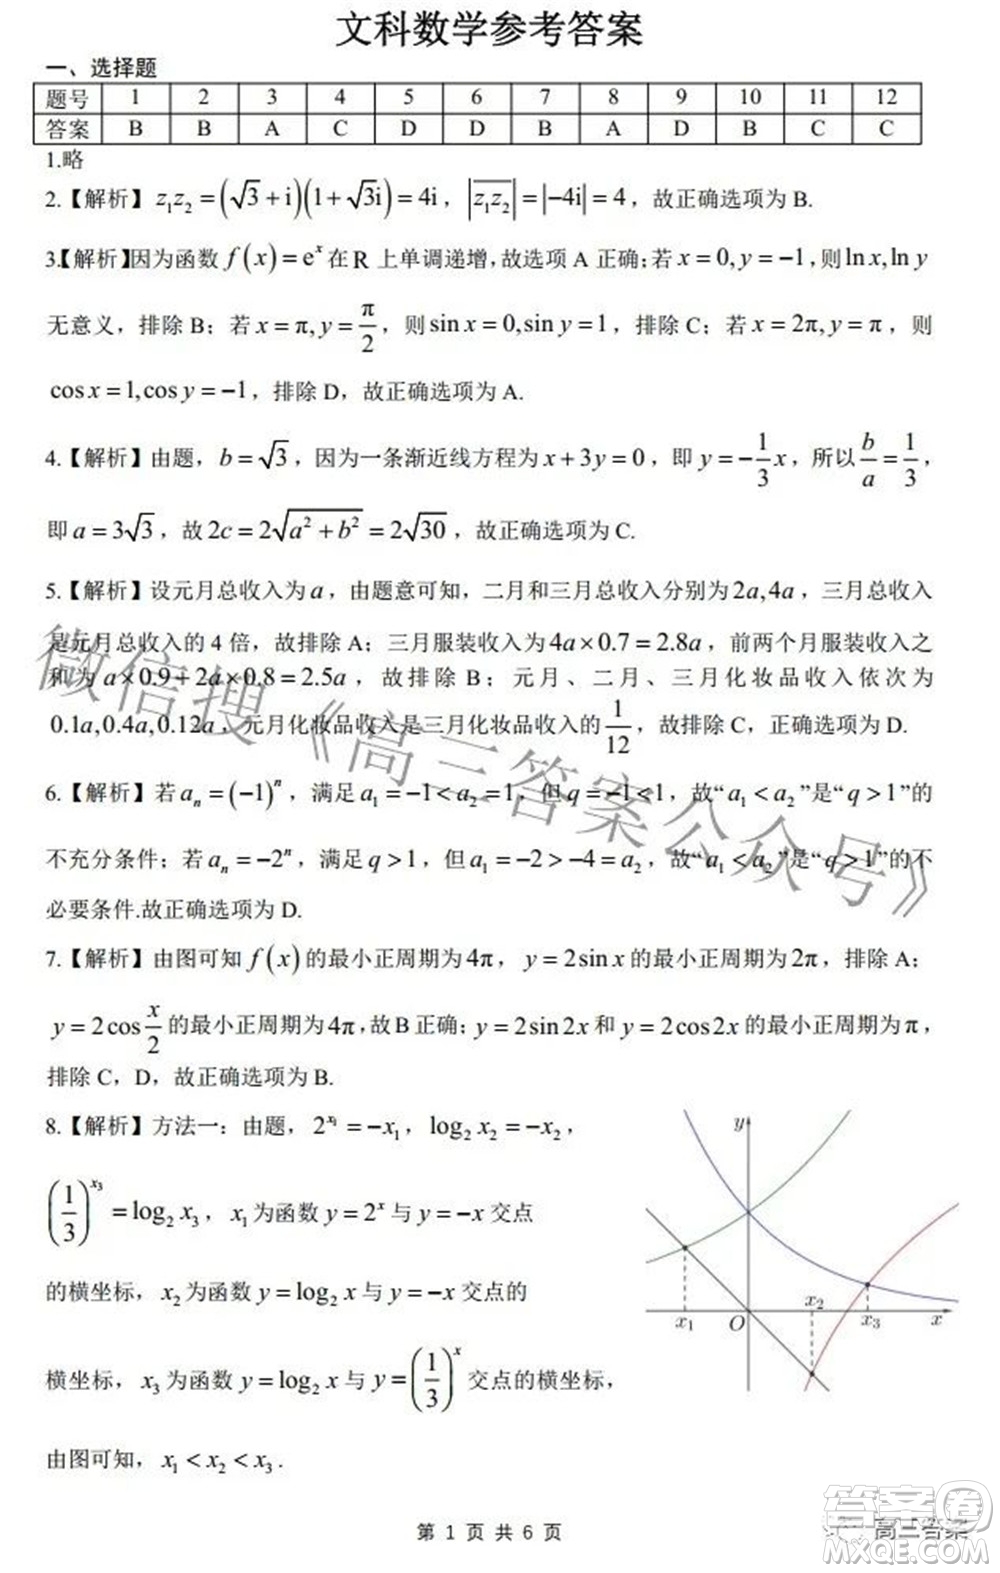 文科数学参考答案
一、选择题
题号 1 2 3 4 5 6 7 8 9 10 11 12
答案 B B A C D D B A D B C C
1.略
2.【解析】z₁z₂=(√3+i)(1+√3i)=4i，|z₁z₂|=|−4i|=4，故正确选项为 B.
3【解析】因为函数 f(x)=eˣ 在 R 上单调递增,故选项 A 正确;若 x=0,y=−1,则 ln x,ln y
无意义，排除 B；若 x=π,y=π/2，则 sin x=0,sin y=1，排除 C；若 x=2π,y=π，则
cos x=1,cos y=−1，排除 D，故正确选项为 A.
4.【解析】由题，b=√3，因为一条渐近线方程为 x+3y=0，即 y=−1/3x，所以 b/a=1/3，
即 a=3√3，故 2c=2√(a²+b²)=2√30，故正确选项为 C.
5.【解析】设元月总收入为 a，由题意可知，二月和三月总收入分别为 2a,4a，三月总收入
是元月总收入的 4 倍，故排除 A；三月服装收入为 4a×0.7=2.8a，前两个月服装收入之
和为 a×0.9+2a×0.8=2.5a，故排除 B；元月、二月、三月化妆品收入依次为
0.1a,0.4a,0.12a，元月化妆品收入是三月化妆品收入的 1/12，故排除 C，正确选项为 D.
6.【解析】若 aₙ=(−1)ⁿ，满足 a₁=−1<a₂=1，但 q=−1<1，故“a₁<a₂”是“q>1”的
不充分条件；若 aₙ=−2ⁿ，满足 q>1，但 a₁=−2>−4=a₂，故“a₁<a₂”是“q>1”的不
必要条件.故正确选项为 D.
7.【解析】由图可知 f(x) 的最小正周期为 4π，y=2sin x 的最小正周期为 2π，排除 A；
y=2cos x/2 的最小正周期为 4π，故 B 正确；y=2sin2x 和 y=2cos2x 的最小正周期为 π，
排除 C，D，故正确选项为 B.
8.【解析】方法一：由题，2^x₁=−x₁，log₂x₂=−x₂，
(1/3)^x₃=log₂x₃，x₁ 为函数 y=2ˣ 与 y=−x 交点
的横坐标，x₂ 为函数 y=log₂x 与 y=−x 交点的
横坐标，x₃ 为函数 y=log₂x 与 y=(1/3)ˣ 交点的横坐标，
由图可知，x₁<x₂<x₃.
y
x₂
x₁ O x₃ x
第 1 页 共 6 页
微信搜《高三答案公众号》
高三答案
答案卷
MXQE.COM